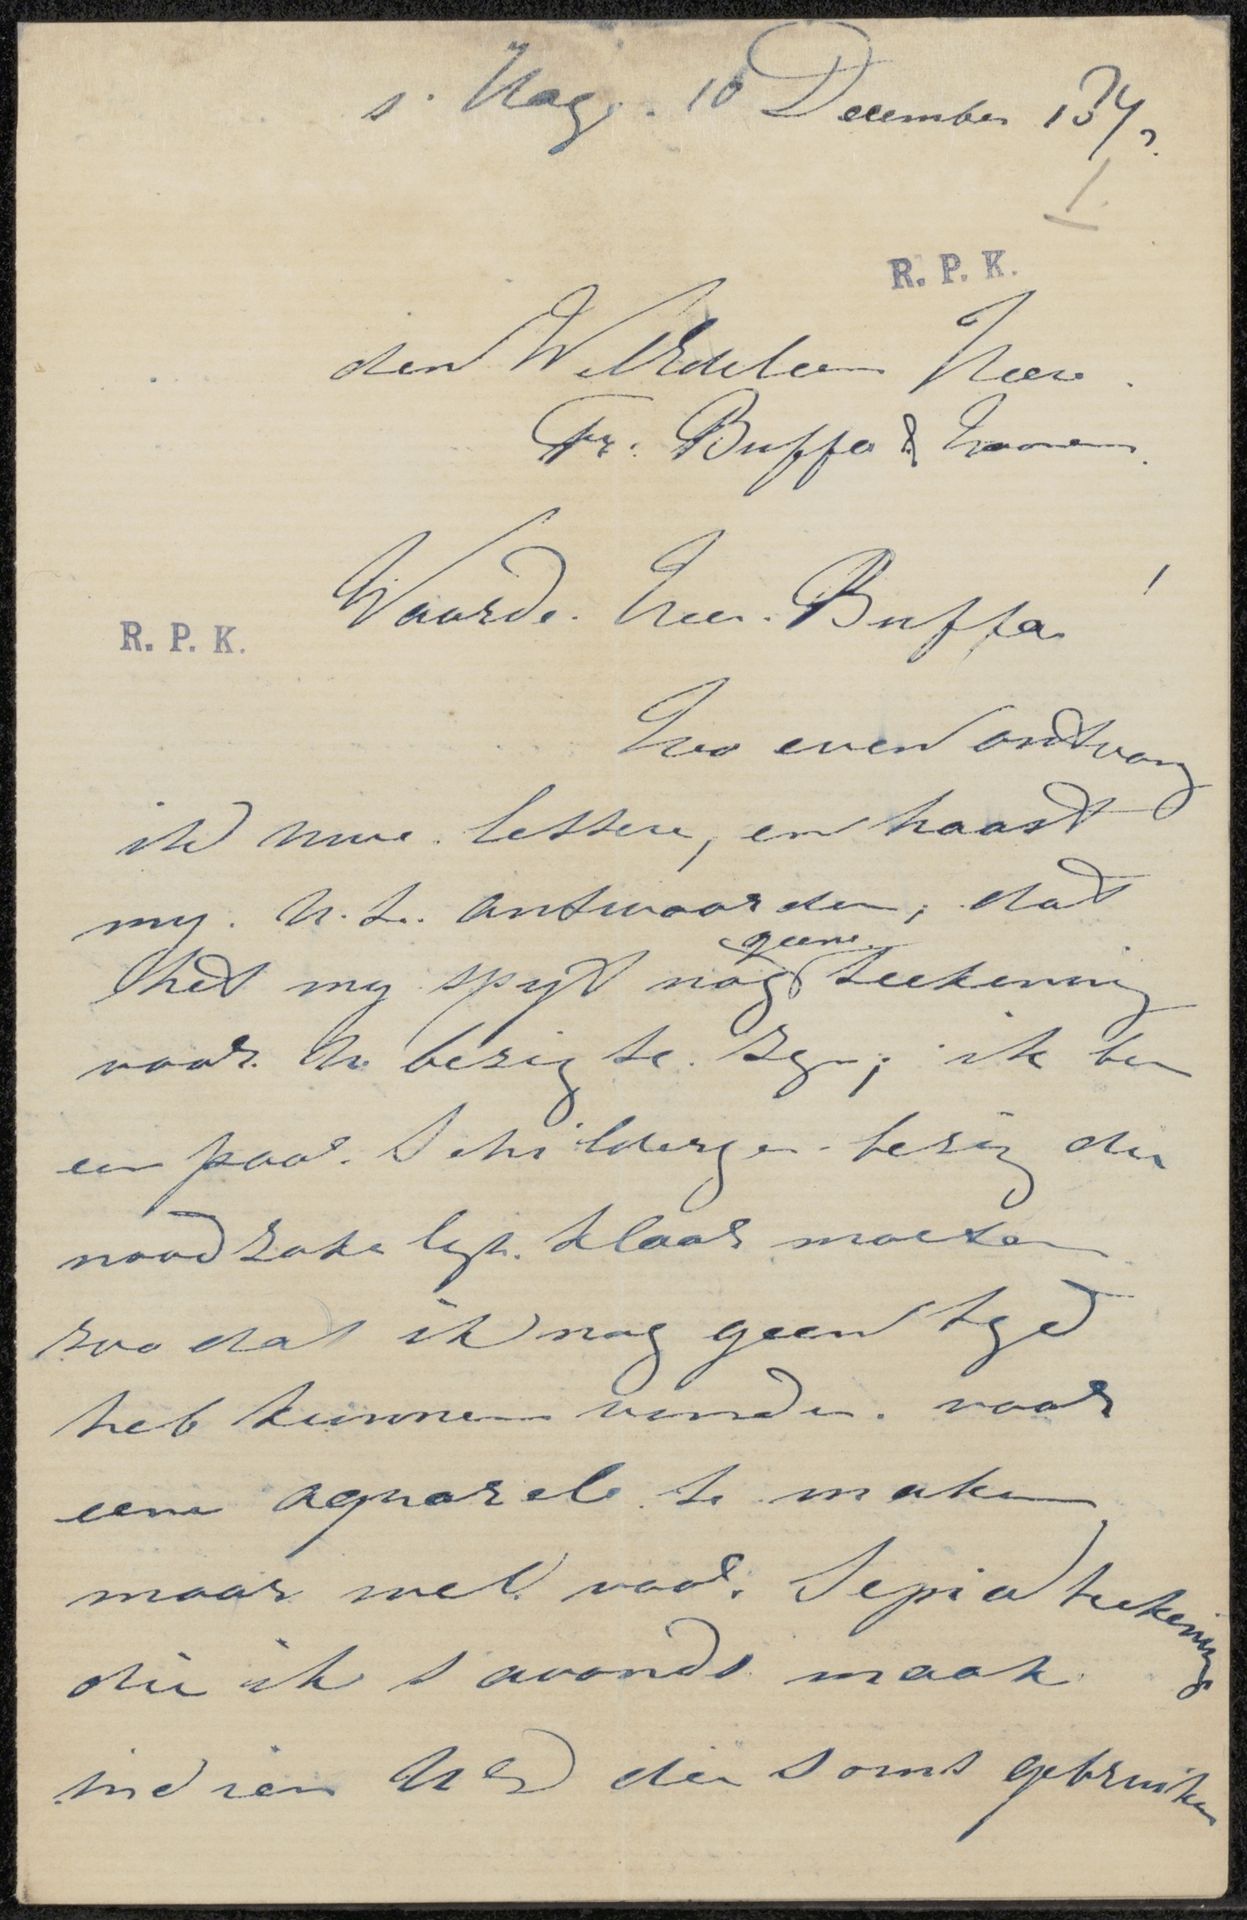 s. Hag. 10 December 187
1.
R. P. K.
den WelEdelen Heere
Fr. Buffa & Zoonen.
Waarde. Heer. Buffa !
R. P. K.
Zoo even ontvang
ik uwe. lettere, en haast
my. U. te. antwoorden, dat
geene
het my spyt nog teekening
voor. U. bezig te. zyn; ik ben
een paar. Schilderyen bezig die
noodzakelyk. klaar moeten
zoo dat ik nog geen tyd
heb kunnen vinden. voor
eene aquarele te maken
maar wel. voor. Sepia teekening
die ik s avonds maak
indien UEd die soms gebruiken